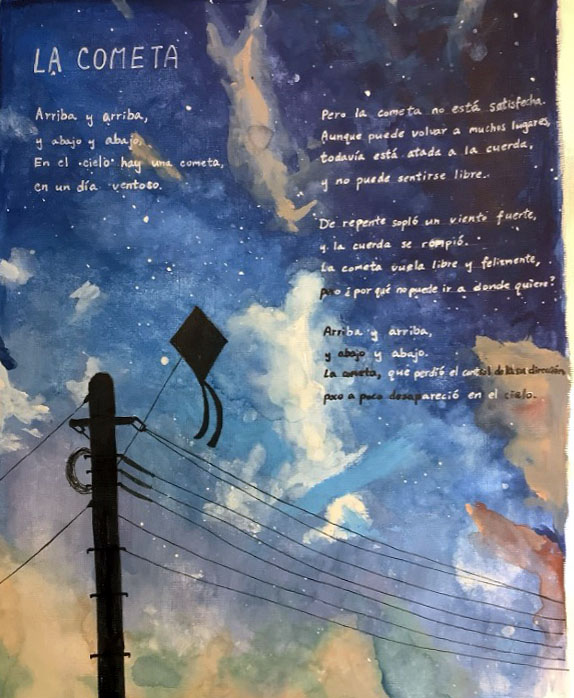 LA COMETA
Arriba y arriba,
y abajo y abajo,
En el cielo hay una cometa,
en un día ventoso.
Pero la cometa no está satisfecha.
Aunque puede volvar a muchos lugares,
todavía está atada a la cuerda,
y no puede sentirse libre.
De repente sopló un viento fuerte,
y la cuerda se rompió.
La cometa vuela libre y felizmente,
pero ¿por qué no puede ir a donde quiere?
Arriba y arriba,
y abajo y abajo.
La cometa, que perdió el control de la su dirección
poco a poco desapareció en el cielo.